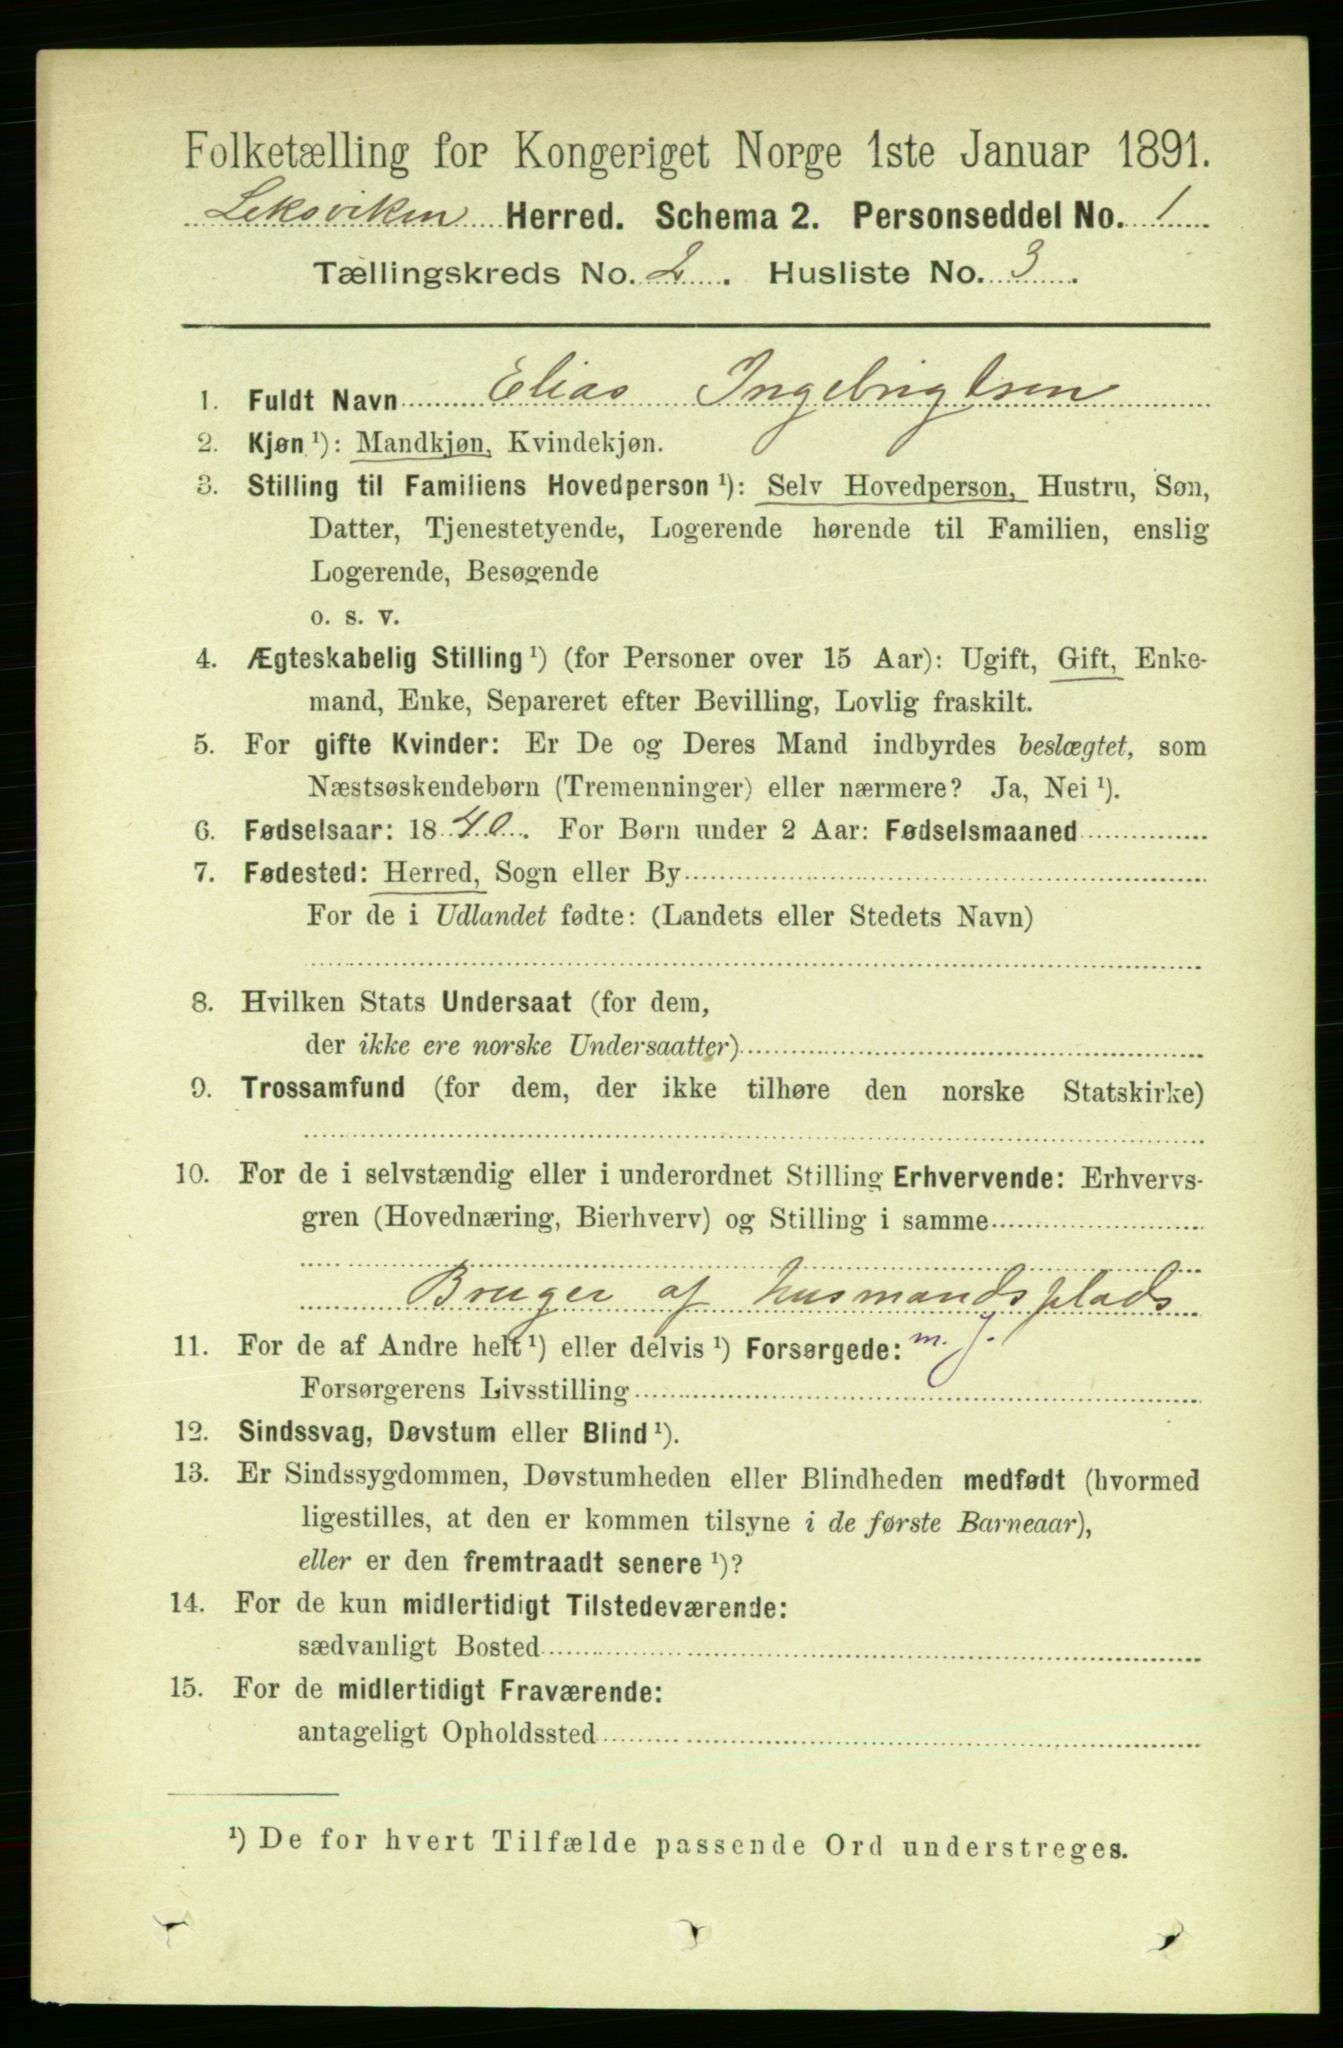 Folketælling for Kongeriget Norge 1ste Januar 1891.
Leksviken Herred. Schema 2. Personseddel No. 1
Tællingskreds No. 2. Husliste No. 3.
1. Fuldt Navn Elias Ingebrigtsen
2. Kjøn ¹): Mandkjøn, Kvindekjøn.
3. Stilling til Familiens Hovedperson ¹): Selv Hovedperson, Hustru, Søn,
Datter, Tjenestetyende, Logerende hørende til Familien, enslig
Logerende, Besøgende
o. s. v.
4. Ægteskabelig Stilling ¹) (for Personer over 15 Aar): Ugift, Gift, Enke-
mand, Enke, Separeret efter Bevilling, Lovlig fraskilt.
5. For gifte Kvinder: Er De og Deres Mand indbyrdes beslægtet, som
Næstsøskendebørn (Tremenninger) eller nærmere? Ja, Nei ¹).
6. Fødselsaar: 1840. For Børn under 2 Aar: Fødselsmaaned
7. Fødested: Herred, Sogn eller By
For de i Udlandet fødte: (Landets eller Stedets Navn)
8. Hvilken Stats Undersaat (for dem,
der ikke ere norske Undersaatter)
9. Trossamfund (for dem, der ikke tilhøre den norske Statskirke)
10. For de i selvstændig eller i underordnet Stilling Erhvervende: Erhvervs-
gren (Hovednæring, Bierhverv) og Stilling i samme
Bruger af husmandsplads
m. j.
11. For de af Andre helt ¹) eller delvis ¹) Forsørgede:
Forsørgerens Livsstilling
12. Sindssvag, Døvstum eller Blind ¹).
13. Er Sindssygdommen, Døvstumheden eller Blindheden medfødt (hvormed
ligestilles, at den er kommen tilsyne i de første Barneaar),
eller er den fremtraadt senere ¹)?
14. For de kun midlertidigt Tilstedeværende:
sædvanligt Bosted
15. For de midlertidigt Fraværende:
antageligt Opholdssted
¹) De for hvert Tilfælde passende Ord understreges.